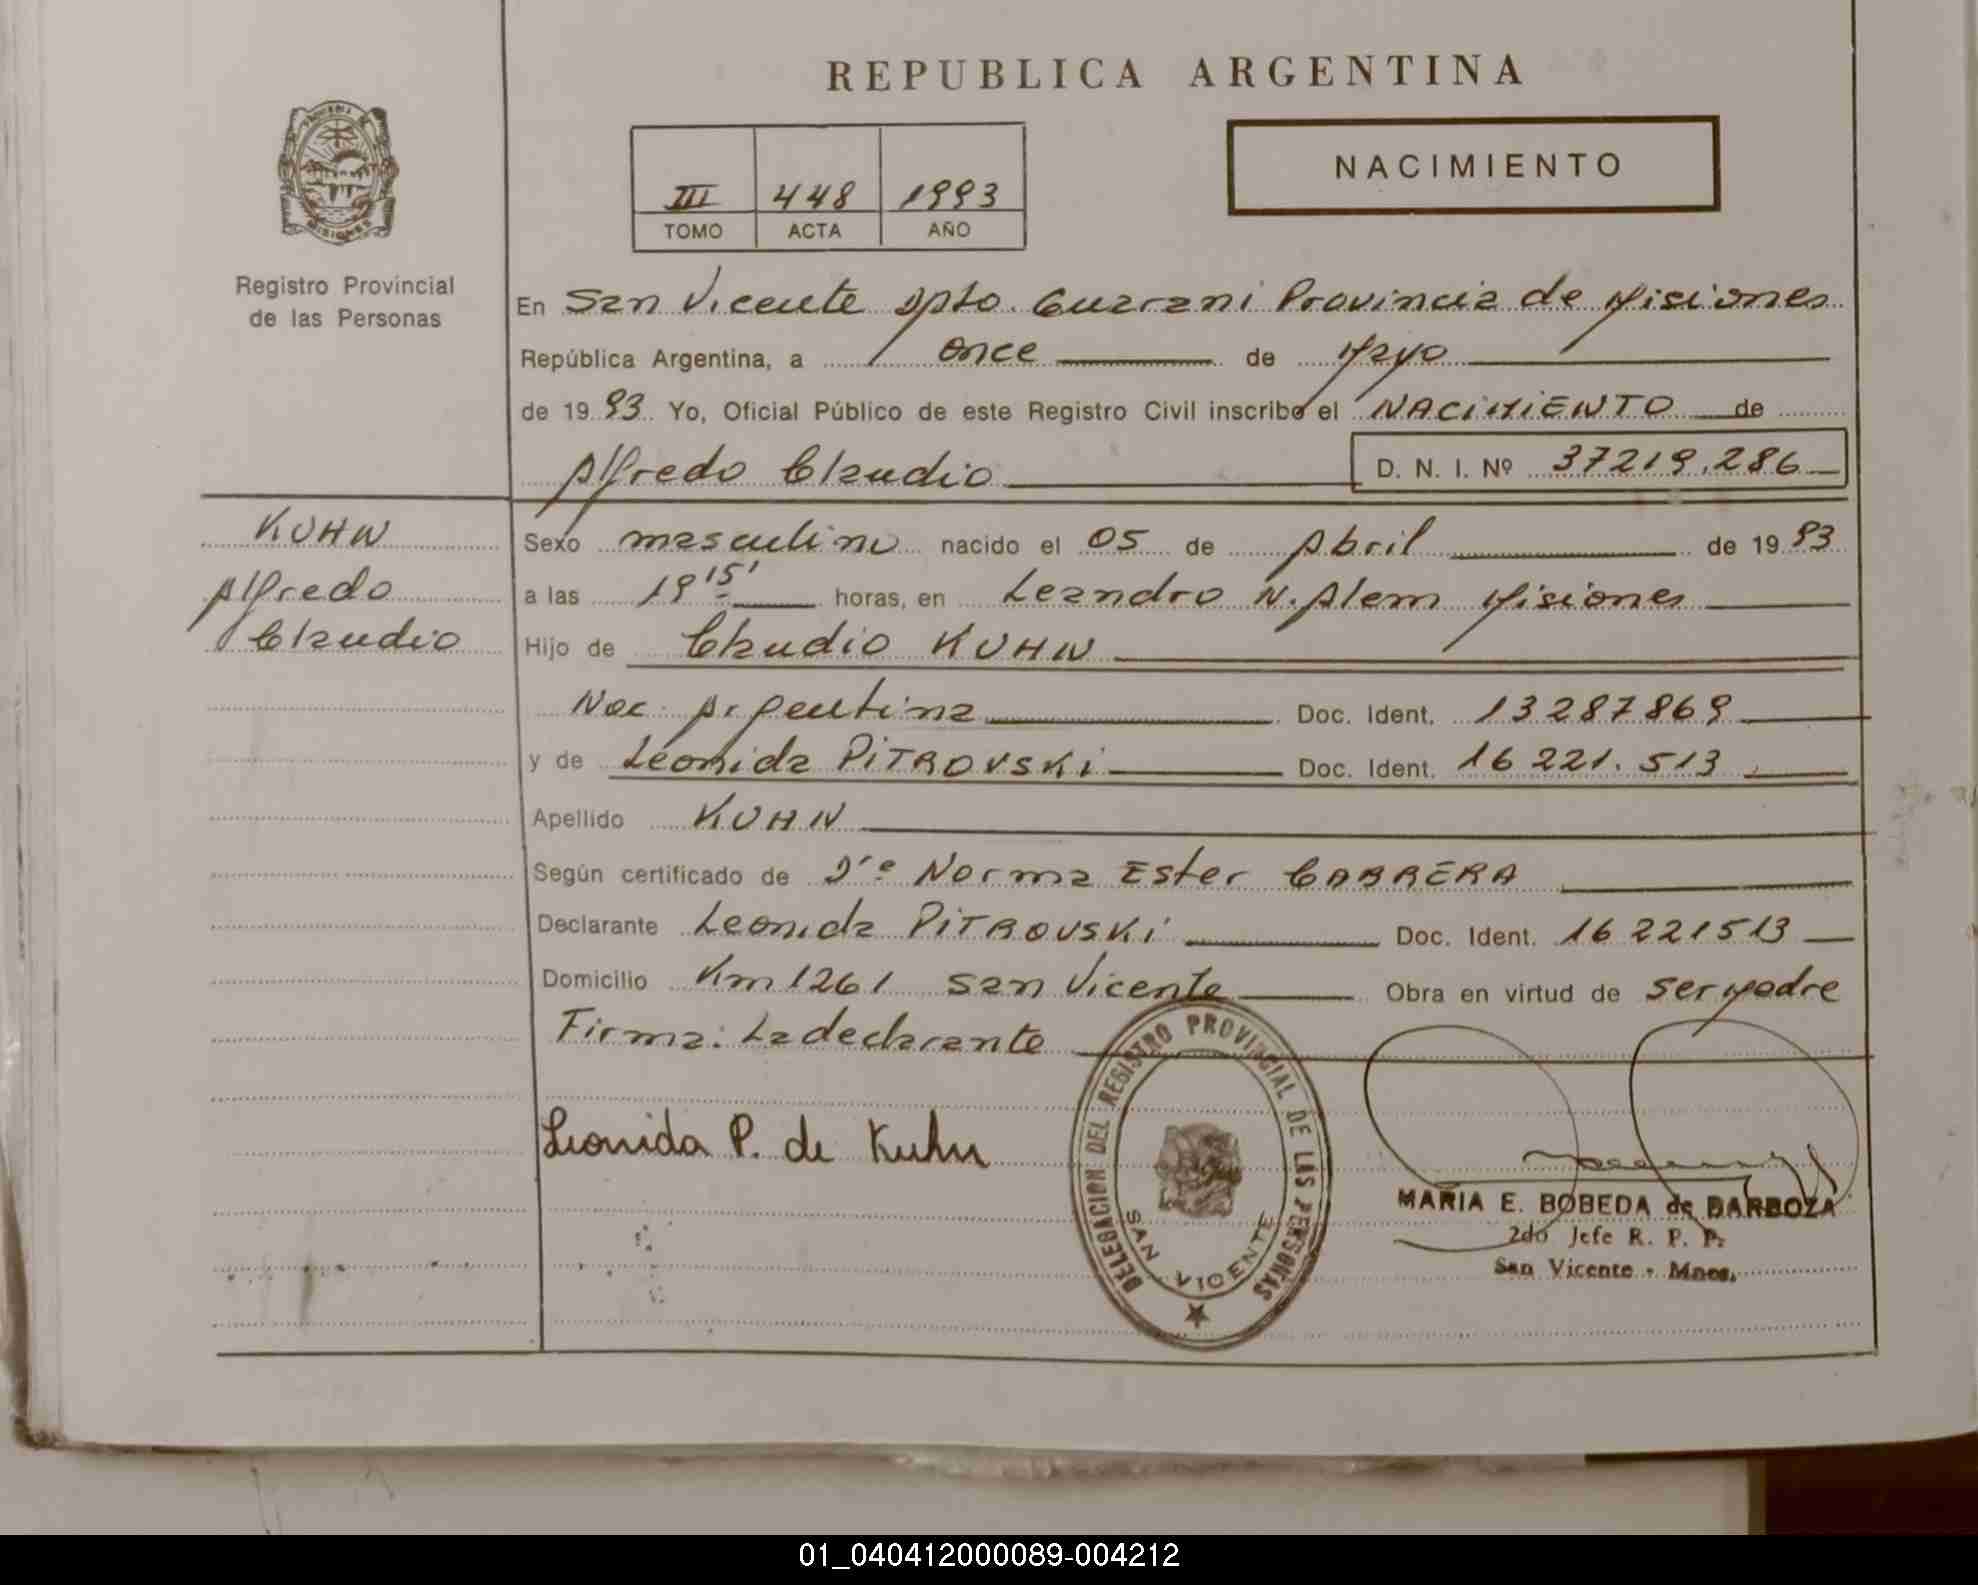 REPUBLICA ARGENTINA
PROVINCIA DE
MISIONES
Registro Provincial
de las Personas
NACIMIENTO
III 448 1993
TOMO ACTA AÑO
En San Vicente Dpto. Guarani Provincia de Misiones
República Argentina, a once de Mayo
de 1993 Yo, Oficial Público de este Registro Civil inscribo el NACIMIENTO de
Alfredo Claudio D. N. I. Nº 37219.286
KUHN
Alfredo
Claudio
Sexo masculino nacido el 05 de Abril de 1993
a las 19 15' horas, en Leandro N. Alem Misiones
Hijo de Claudio KUHN
Nac. Argentina Doc. Ident. 13287869
y de Leonida PiTROVSKi Doc. Ident. 16 221.513
Apellido KUHN
Según certificado de Dra Norma Ester CABRERA
Declarante Leonida PiTROVSKi Doc. Ident. 16 221513
Domicilio Km 1261 San Vicente Obra en virtud de ser Madre
Firma: La declarante
Leonida P. de Kuhn
DELEGACION DEL REGISTRO PROVINCIAL DE LAS PERSONAS
SAN VICENTE
MARIA E. BOBEDA de BARBOZA
2do Jefe R. P. P.
San Vicente - Mnes.
01_040412000089-004212